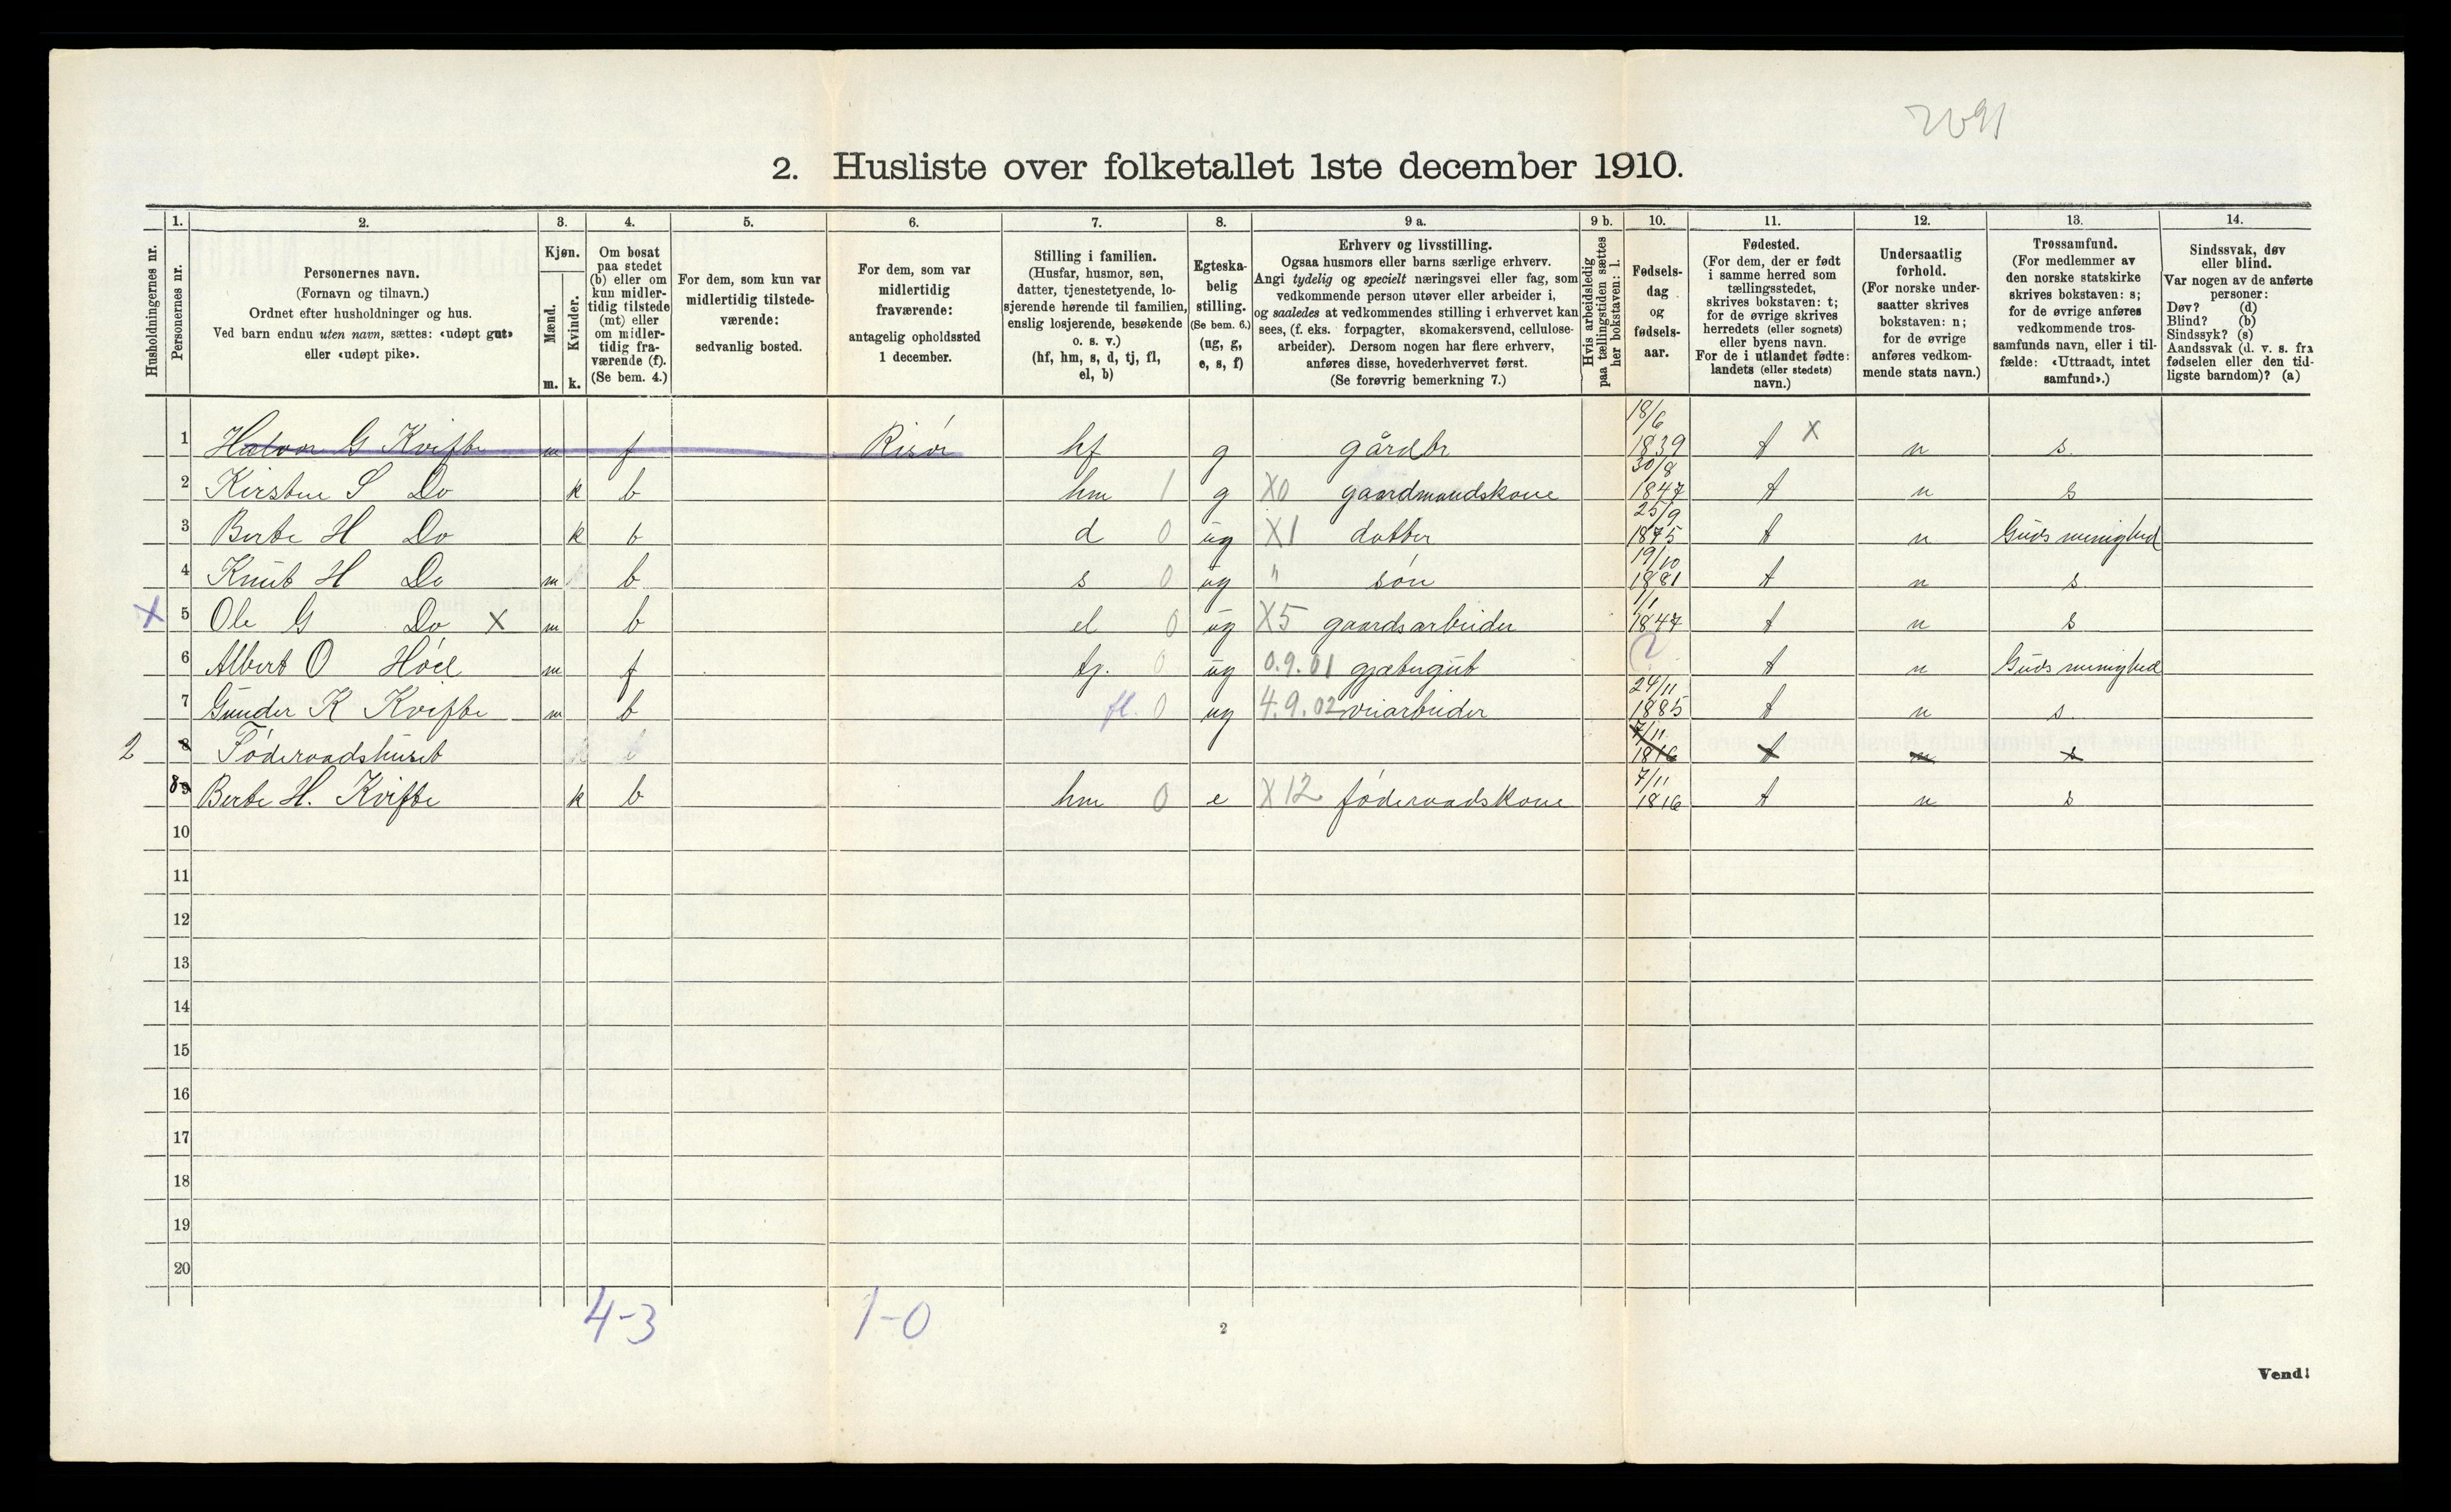 2091
2. Husliste over folketallet 1ste december 1910.
Husholdningernes nr.
1. Personernes nr.
2. Personernes navn.
(Fornavn og tilnavn.)
Ordnet efter husholdninger og hus.
Ved barn endnu uten navn, sættes: «udøpt gut»
eller «udøpt pike».
3. Kjøn.
Mænd. m.
Kvinder. k.
4. Om bosat
paa stedet
(b) eller om
kun midler-
tidig tilstede
(mt) eller
om midler-
tidig fra-
værende (f).
(Se bem. 4.)
5. For dem, som kun var
midlertidig tilstede-
værende:
sedvanlig bosted.
6. For dem, som var
midlertidig
fraværende:
antagelig opholdssted
1 december.
7. Stilling i familien.
(Husfar, husmor, søn,
datter, tjenestetyende, lo-
sjerende hørende til familien,
enslig losjerende, besøkende
o. s. v.)
(hf, hm, s, d, tj, fl,
el, b)
8. Egteska-
belig
stilling.
(Se bem. 6.)
(ug, g,
e, s, f)
9 a. Erhverv og livsstilling.
Ogsaa husmors eller barns særlige erhverv.
Angi tydelig og specielt næringsvei eller fag, som
vedkommende person utøver eller arbeider i,
og saaledes at vedkommendes stilling i erhvervet kan
sees, (f. eks. forpagter, skomakersvend, cellulose-
arbeider). Dersom nogen har flere erhverv,
anføres disse, hovederhvervet først.
(Se forøvrig bemerkning 7.)
9 b. Hvis arbeidsledig
paa tællingstiden sættes
her bokstaven: l.
10. Fødsels-
dag
og
fødsels-
aar.
11. Fødested.
(For dem, der er født
i samme herred som
tællingsstedet,
skrives bokstaven: t;
for de øvrige skrives
herredets (eller sognets)
eller byens navn.
For de i utlandet fødte:
landets (eller stedets)
navn.)
12. Undersaatlig
forhold.
(For norske under-
saatter skrives
bokstaven: n;
for de øvrige
anføres vedkom-
mende stats navn.)
13. Trossamfund.
(For medlemmer av
den norske statskirke
skrives bokstaven: s;
for de øvrige anføres
vedkommende tros-
samfunds navn, eller i til-
fælde: «Uttraadt, intet
samfund».)
14. Sindssvak, døv
eller blind.
Var nogen av de anførte
personer:
Døv? (d)
Blind? (b)
Sindssyk? (s)
Aandssvak (d. v. s. fra
fødselen eller den tid-
ligste barndom)? (a)
1 Halvor G Kvifte m f Risør hf g gårdbr 18/6 1839 t X n s.
2 Kirstine S Do k b hm 1 g X0 gaardmandskone 30/8 1847 t n s
3 Berte H Do k b d 0 ug X1 datter 25/9 1875 t n Guds menighed
4 Knut H Do m b s 0 ug " søn 19/10 1881 t n s
X 5 Ole G Do X m b el 0 ug X5 gaardsarbeider 1/1 1847 t n s
6 Albert O Höel m f tj. 0 ug 0.9.01 gjætergut ? t n Guds menighed
7 Gunder K Kvifte m b fl. 0 ug 4.9.02 veiarbeider 24/11 1885 t n s.
2 8 Föderaadshuset 7/11 1816 t n s
8 9 Berte H. Kvifte k b hm 0 e X12 föderaadskone 7/11 1816 t n s
10
11
12
13
14
15
16
17
18
19
20
4-3 1-0
2
Vend!